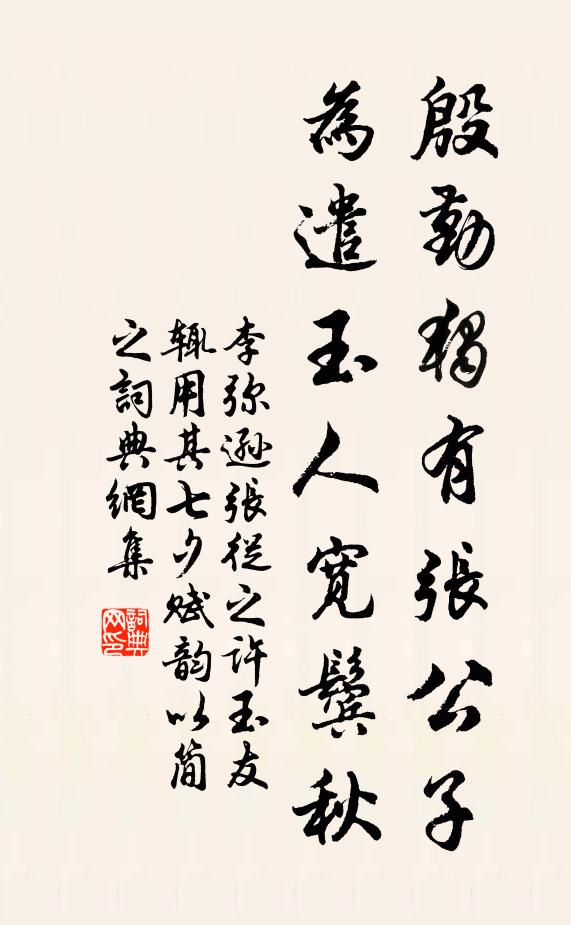 殷勤獨有張公子
為遣玉人寬鬢秋
李弥遜張從之許玉友
輒用其七夕賦韵以简
之詞典網集
詞典
网印